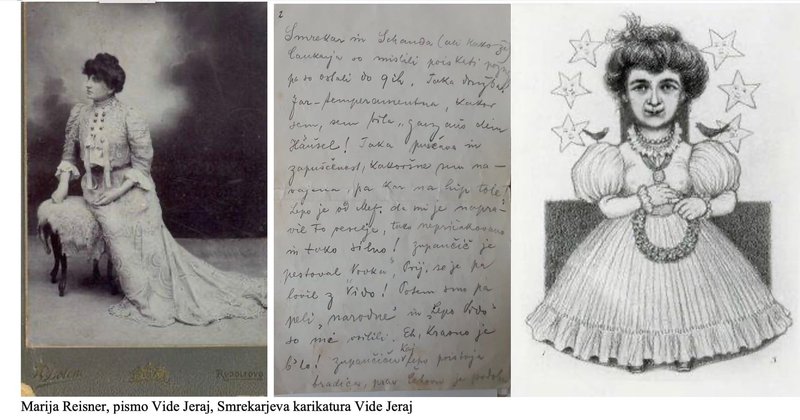 2
Smrekar in Schanda (ali kako že)
Cankarja so mislili poiskati pozneje
pa so ostali do 9ih. Taka družba!
Jaz – temperamentna, kakor
sem, sem bila „ganz aus dem
Häusel“! Taka puščava in
zapuščenost, kakoršne sem na-
vajena, pa kar na hip tole!
Lepo je od Mef. da mi je napra-
vil to veselje, tako nepričakovano
in tako silno! Zupančič je
pestoval Vovka,
lovil z Vido! Potem smo pa
peli „narodne“ in „Lepo Vido“
so me vsilili. Eh, krasno je
bilo! Zupančiču kaj lepo pristoja
bradica, prav Čehovu je podoben
RUDOLFOVO
Marija Reisner, pismo Vide Jeraj, Smrekarjeva karikatura Vide Jeraj